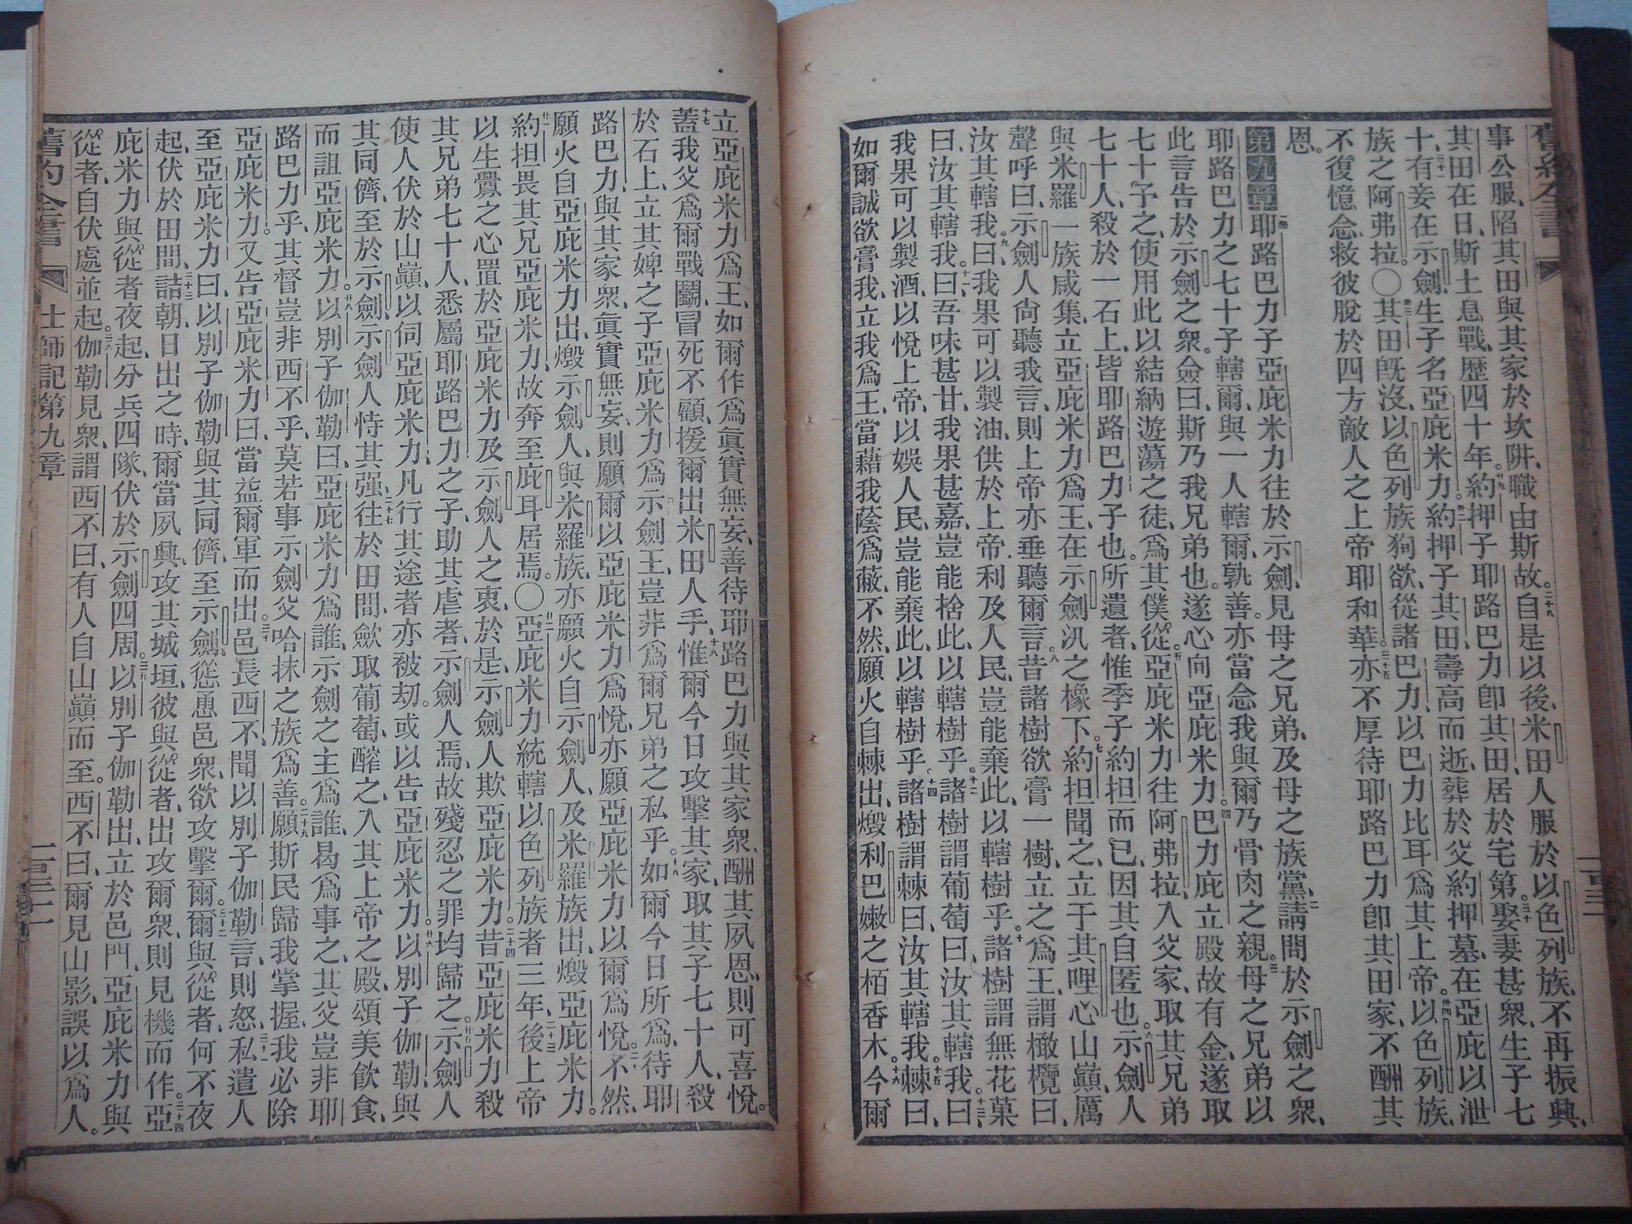 舊約全書
事公服、陷其田與其家於坎阱、職由斯故。二十八自是以後、米田人服於以色列族、不再振興、
其田在日、斯土息戰、歷四十年。廿九約押子耶路巴力卽其田居於宅第。三十娶妻甚衆、生子七
十、三十一有妾在示劍、生子名亞庇米力。三十二約押子其田、壽高而逝、葬於父約押墓、在亞庇以泄
族之阿弗拉。〇三十三其田旣沒、以色列族狗欲、從諸巴力、以巴力比耳爲其上帝。三十四以色列族、
不復憶念救彼脫於四方敵人之上帝耶和華。三十五亦不厚待耶路巴力卽其田家、不酬其
恩。
第九章一耶路巴力子亞庇米力往於示劍、見母之兄弟、及母之族黨、二請問於示劍之衆、
耶路巴力之七十子轄爾、與一人轄爾、孰善。亦當念我與爾乃骨肉之親。三母之兄弟以
此言告於示劍之衆。僉曰、斯乃我兄弟也。遂心向亞庇米力。四巴力庇立殿故有金、遂取
七十予之、使用此以結納遊蕩之徒、爲其僕從。五亞庇米力往阿弗拉、入父家、取其兄弟
七十人、殺於一石上、皆耶路巴力子也。所遺者、惟季子約担而已、因其自匿也。六示劍人
與米羅一族咸集、立亞庇米力爲王、在示劍汛之橡下。七約担聞之、立于其哩心山巓、厲
聲呼曰、示劍人尙聽我言、則上帝亦垂聽爾言。八昔諸樹欲膏一樹、立之爲王、謂橄欖曰、
汝其轄我。九曰、我果可以製油、供於上帝、利及人民、豈能棄此、以轄樹乎。十諸樹謂無花菓
曰、汝其轄我。十一曰、吾味甚甘、我果甚嘉、豈能捨此、以轄樹乎。十二諸樹謂葡萄曰、汝其轄我。十三曰、
我果可以製酒、以悅上帝、以娛人民、豈能棄此、以轄樹乎。十四諸樹謂棘曰、汝其轄我。十五棘曰、
如爾誠欲膏我、立我爲王、當藉我蔭爲蔽、不然、願火自棘出、燬利巴嫩之栢香木。十六今爾
立亞庇米力爲王、如爾作爲眞實無妄、善待耶路巴力與其家衆、酬其夙恩、則可喜悅。
十七蓋我父爲爾戰鬭、冒死不顧、援爾出米田人手、十八惟爾今日攻擊其家、取其子七十人、殺
於石上、立其婢之子亞庇米力爲示劍王、豈非爲爾兄弟之私乎。十九如爾今日所爲、待耶
路巴力、與其家衆、眞實無妄、則願爾以亞庇米力爲悅、亦願亞庇米力以爾爲悅。二十不然、
願火自亞庇米力出、燬示劍人、與米羅族、亦願火自示劍人、及米羅族出、燬亞庇米力。
廿一約担畏其兄亞庇米力、故奔至庇耳居焉。〇廿二亞庇米力統轄以色列族者三年、二十三後上帝
以生釁之心置於亞庇米力及示劍人之衷、於是示劍人欺亞庇米力。二十四昔亞庇米力殺
其兄弟七十人、悉屬耶路巴力之子、助其虐者、示劍人焉、故殘忍之罪均歸之。廿五示劍人
使人伏於山巓、以伺亞庇米力、凡行其途者亦被刼。或以告亞庇米力。廿六以別子伽勒與
其同儕、至於示劍、示劍人恃其强、二十七往於田間、歛取葡萄、醡之、入其上帝之殿、頌美飮食、
而詛亞庇米力。廿八以別子伽勒曰、亞庇米力爲誰、示劍之主爲誰、曷爲事之、其父豈非耶
路巴力乎、其督豈非西不乎、莫若事示劍父哈抹之族爲善。二十九願斯民歸我掌握、我必除
亞庇米力。又告亞庇米力曰、當益爾軍而出。三十邑長西不聞以別子伽勒言、則怒、三十一私遣人
至亞庇米力曰、以別子伽勒與其同儕、至示劍、慫慂邑衆、欲攻擊爾。三十二爾與從者、何不夜
起、伏於田間、三十三詰朝日出之時、爾當夙興、攻其城垣、彼與從者、出攻爾衆、則見機而作。三十四亞
庇米力與從者夜起、分兵四隊、伏於示劍四周。三十五以別子伽勒出、立於邑門、亞庇米力與
從者自伏處並起。三十六伽勒見衆、謂西不曰、有人自山巓而至。西不曰、爾見山影、誤以爲人。
舊約全書 士師記第九章